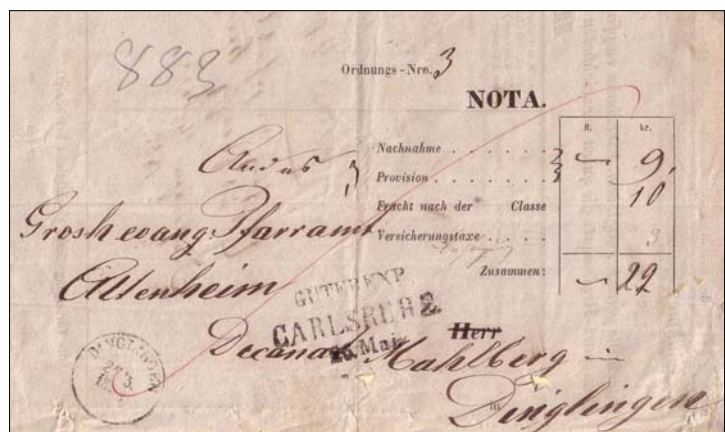 883
Ordnungs-Nro. 3
NOTA.
fl. kr.
Nachnahme . . . . . .
Provision . . . . . . — 9,
Fracht nach der Classe 10
Versicherungstaxe . . . . . 3
Zusammen: — 22
An das
Grosh evang. Pfarramt
Altenheim
GÜTEREXP.
CARLSRUHE
26. Mai
Herr
Decanat Mahlberg in
in Dinglingen
DINGLINGEN